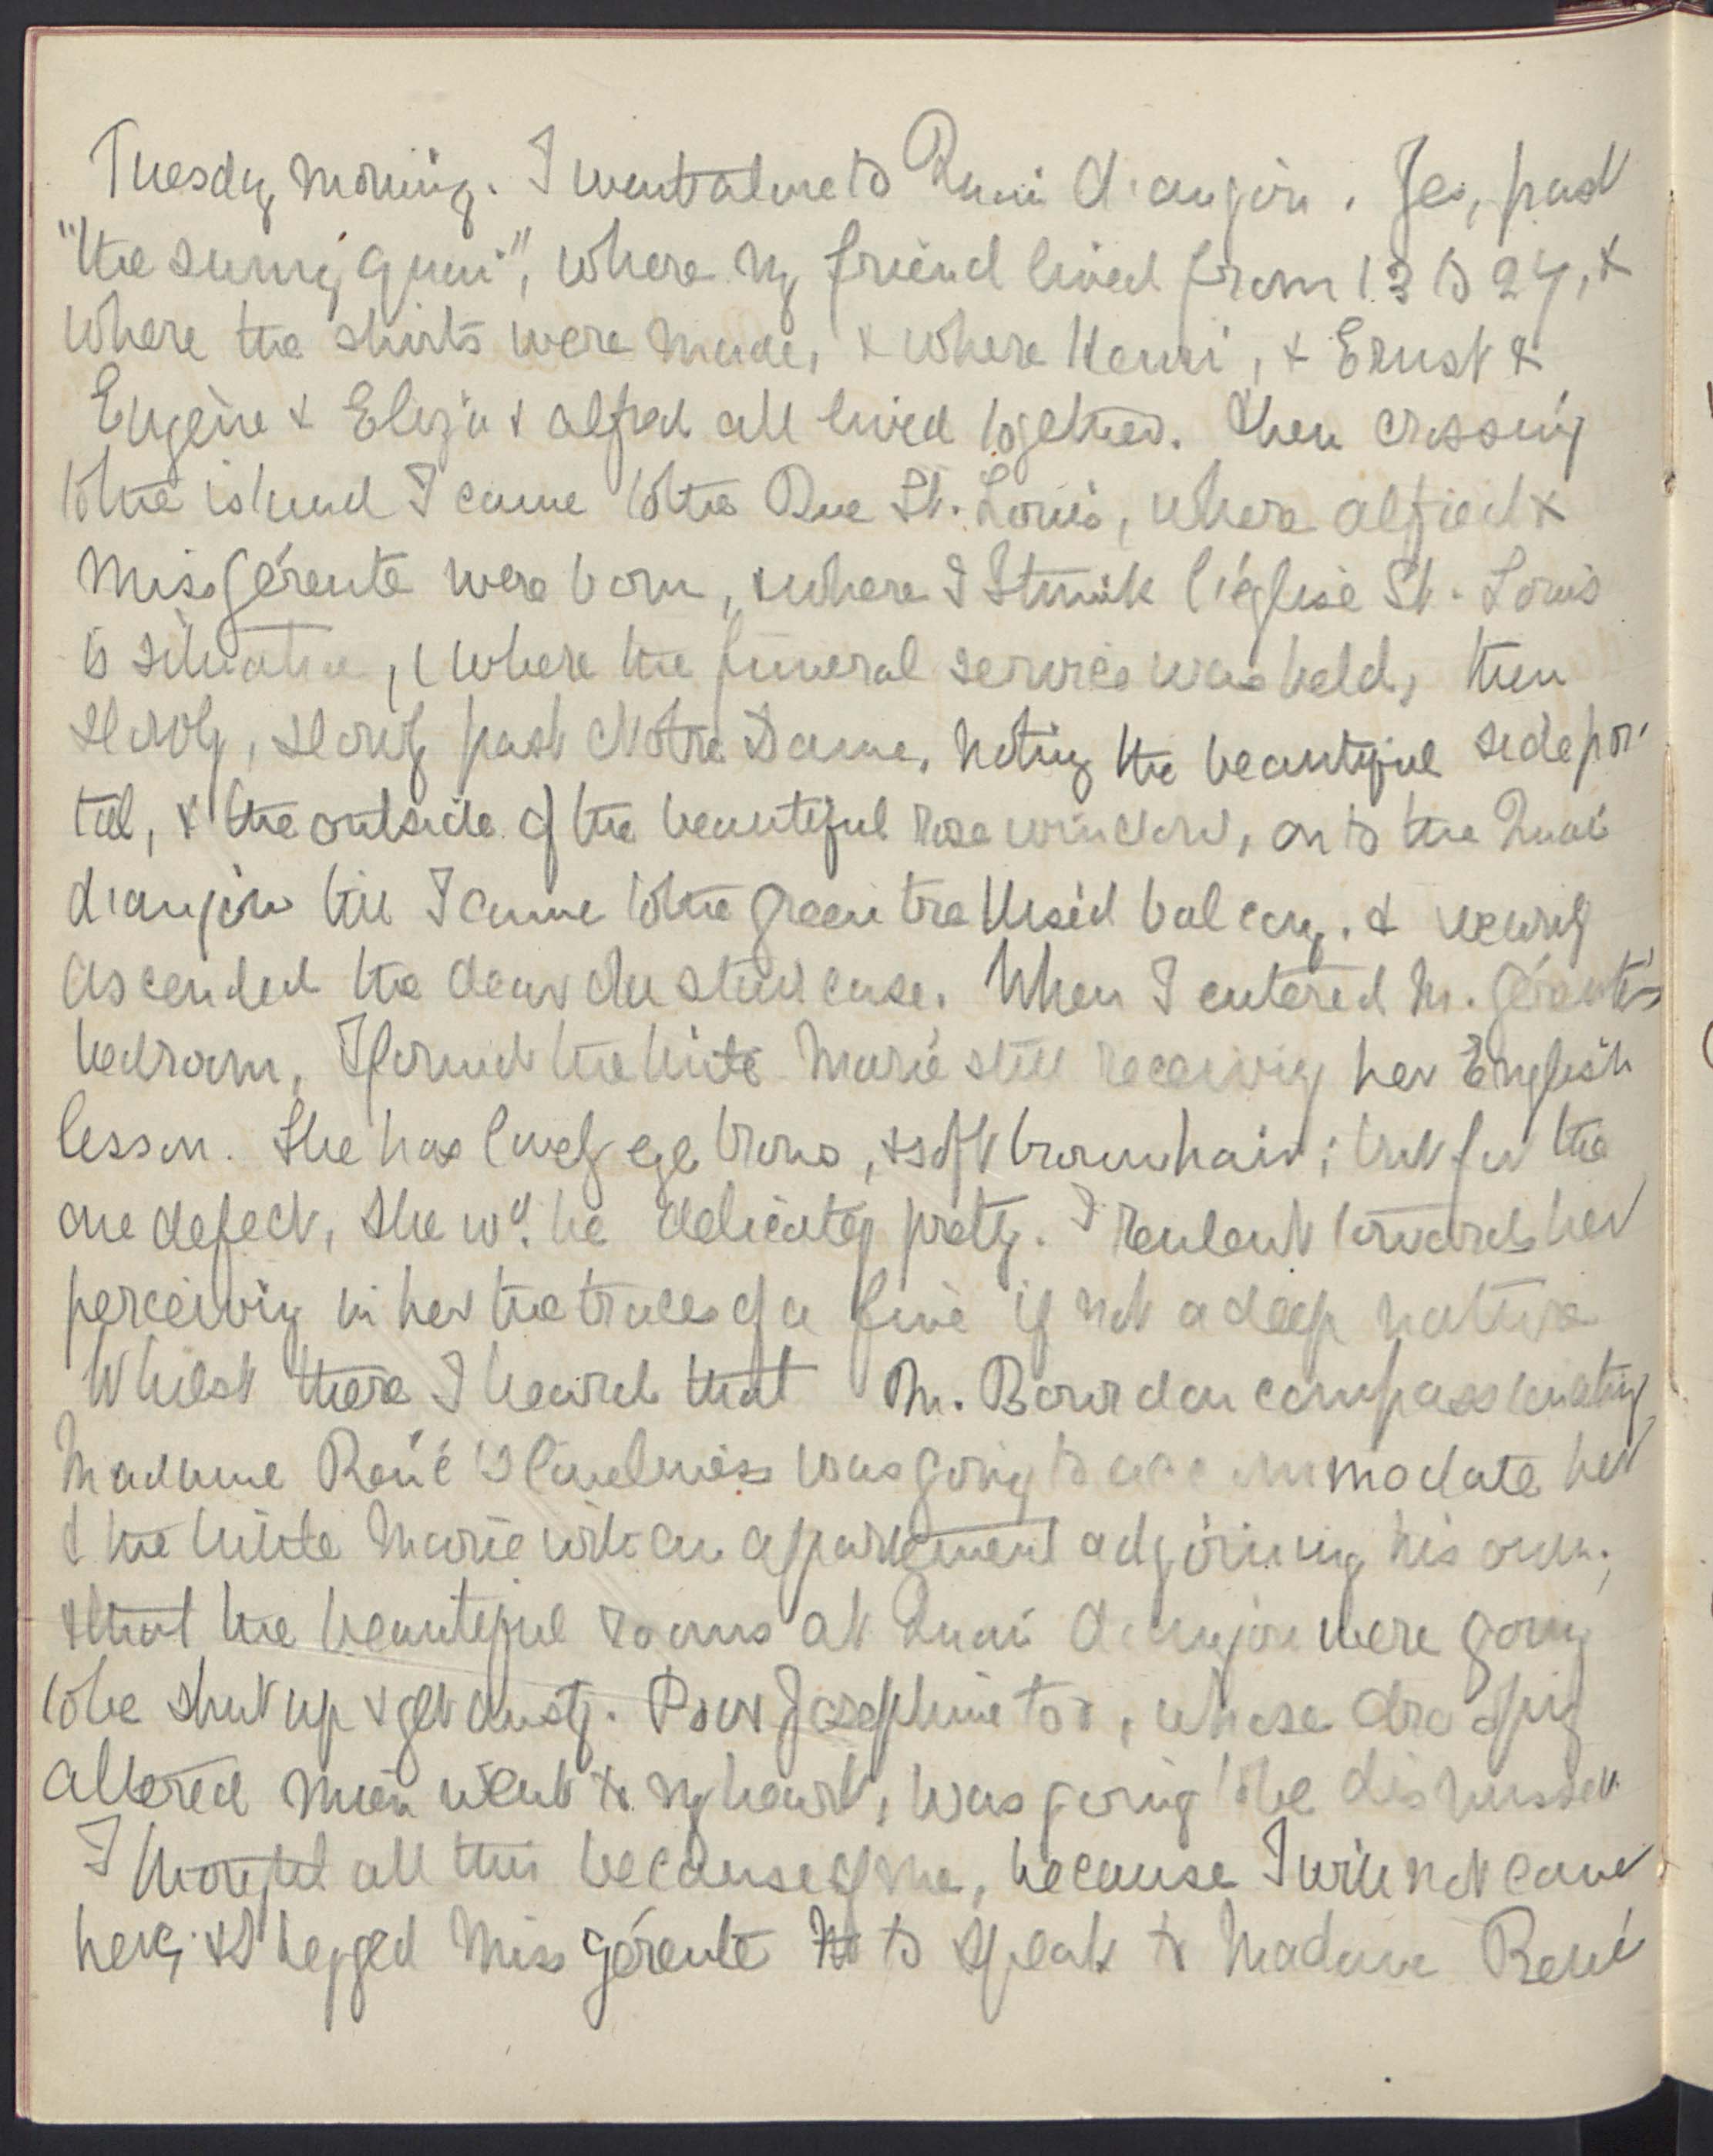 Tuesday morning. I went alone to Quai d'anjou. Yes, past
"the sunny quai", where my friend lived from 13 to 24, &
where the shirts were made, & where Henri, & Ernest &
Eugène & Eliza & Alfred all lived together. Then crossing
to the island I came to the Rue St. Louis, where Alfred &
Miss Gérente were born, & where I think l'église St. Louis
is situated, & where the funeral service was held, then
slowly, slowly past Notre Dame, noting the beautiful side por-
tal, & the outside of the beautiful rose window, on to the Quai
d'anjou till I came to the green trellised balcony. &
ascended the dear old staircase. When I entered M. Gérente's
bedroom, I found the little Marie still receiving her English
lesson. She has lovely eye brows, & soft brown hair; but for the
one defect, she wd. be delicately pretty. I towards her
perceiving in her the traces of a fine if not a deep nature
Whilst there I heard that M. Bourdon compassionating
Madame René's loneliness was going to accommodate her
& the little Marie with an appartement adjoining his own;
& that the beautiful rooms at Quai d'anjou were going
to be shut up & get dusty. Poor Josephine too, whose drooping
altered mien went to my heart, was going to be dismissed.
I thought all this because of me, because I will not come
here; & I begged Miss Gérente to speak to Madame René